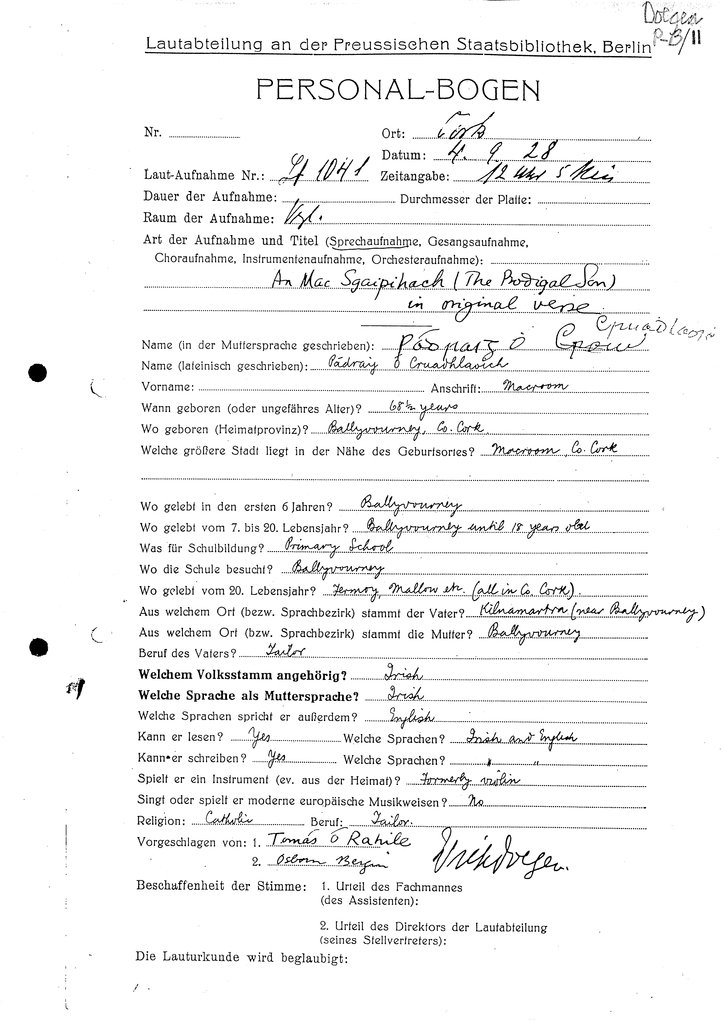 Doegen
P-B/11
Lautabteilung an der Preussischen Staatsbibliothek, Berlin
PERSONAL-BOGEN
Nr. Ort: Cork
Datum: 4. 9. 28
Laut-Aufnahme Nr.: 1041 Zeitangabe: 12 Uhr 5 Min
Dauer der Aufnahme: Durchmesser der Platte:
Raum der Aufnahme:
Art der Aufnahme und Titel (Sprechaufnahme, Gesangsaufnahme,
Choraufnahme, Instrumentenaufnahme, Orchesteraufnahme):
An Mac Sgaipthach (The Prodigal Son)
in original verse
Name (in der Muttersprache geschrieben): Pádraig Ó
Name (lateinisch geschrieben): Pádraig Ó Cruadhlaoich
Vorname: Anschrift: Macroom
Wann geboren (oder ungefähres Alter)? 68½ years
Wo geboren (Heimatprovinz)? Ballyvourney, Co. Cork.
Welche größere Stadt liegt in der Nähe des Geburtsortes? Macroom, Co. Cork
Wo gelebt in den ersten 6 Jahren? Ballyvourney
Wo gelebt vom 7. bis 20. Lebensjahr? Ballyvourney until 18 years old
Was für Schulbildung? Primary School
Wo die Schule besucht? Ballyvourney
Wo gelebt vom 20. Lebensjahr? Fermoy, Mallow etc. (all in Co. Cork).
Aus welchem Ort (bezw. Sprachbezirk) stammt der Vater? Kilnamartra (near Ballyvourney)
Aus welchem Ort (bezw. Sprachbezirk) stammt die Mutter? Ballyvourney
Beruf des Vaters? Tailor
Welchem Volksstamm angehörig? Irish
Welche Sprache als Muttersprache? Irish
Welche Sprachen spricht er außerdem? English
Kann er lesen? Yes Welche Sprachen? Irish and English
Kann er schreiben? Yes Welche Sprachen? " "
Spielt er ein Instrument (ev. aus der Heimat)? Formerly violin
Singt oder spielt er moderne europäische Musikweisen? No
Religion: Catholic Beruf: Tailor.
Vorgeschlagen von: 1. Tomás Ó Rahile
2. Osborn Bergin
Beschaffenheit der Stimme: 1. Urteil des Fachmannes
(des Assistenten):
2. Urteil des Direktors der Lautabteilung
(seines Stellvertreters):
Die Lauturkunde wird beglaubigt: